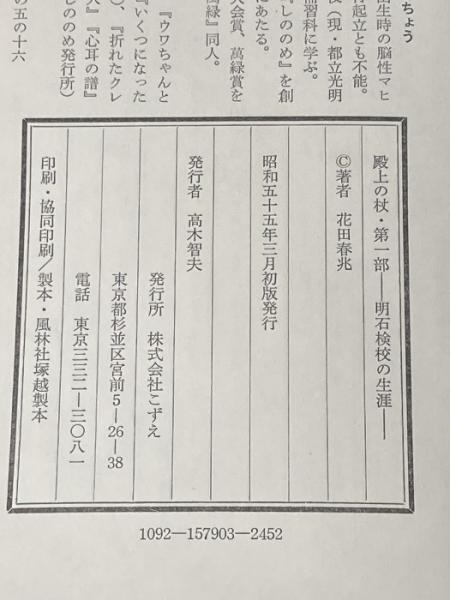 ちょう
出生時の脳性マヒ
行起立とも不能。
校(現・都立光明
補習科に学ぶ。
『しののめ』を創
にあたる。
大会賞、萬緑賞を
萬緑』同人。
『ウワちゃんと
『いくつになった
』、『折れたクレ
人』『心耳の譜』
しののめ発行所)
の五の十六
殿上の杖・第一部――明石検校の生涯――
©著者 花田春兆
昭和五十五年三月初版発行
発行者 高木智夫
発行所 株式会社こずえ
東京都杉並区宮前5―26―38
電話 東京三三二―三〇八一
印刷・協同印刷/製本・風林社塚越製本
1092―157903―2452